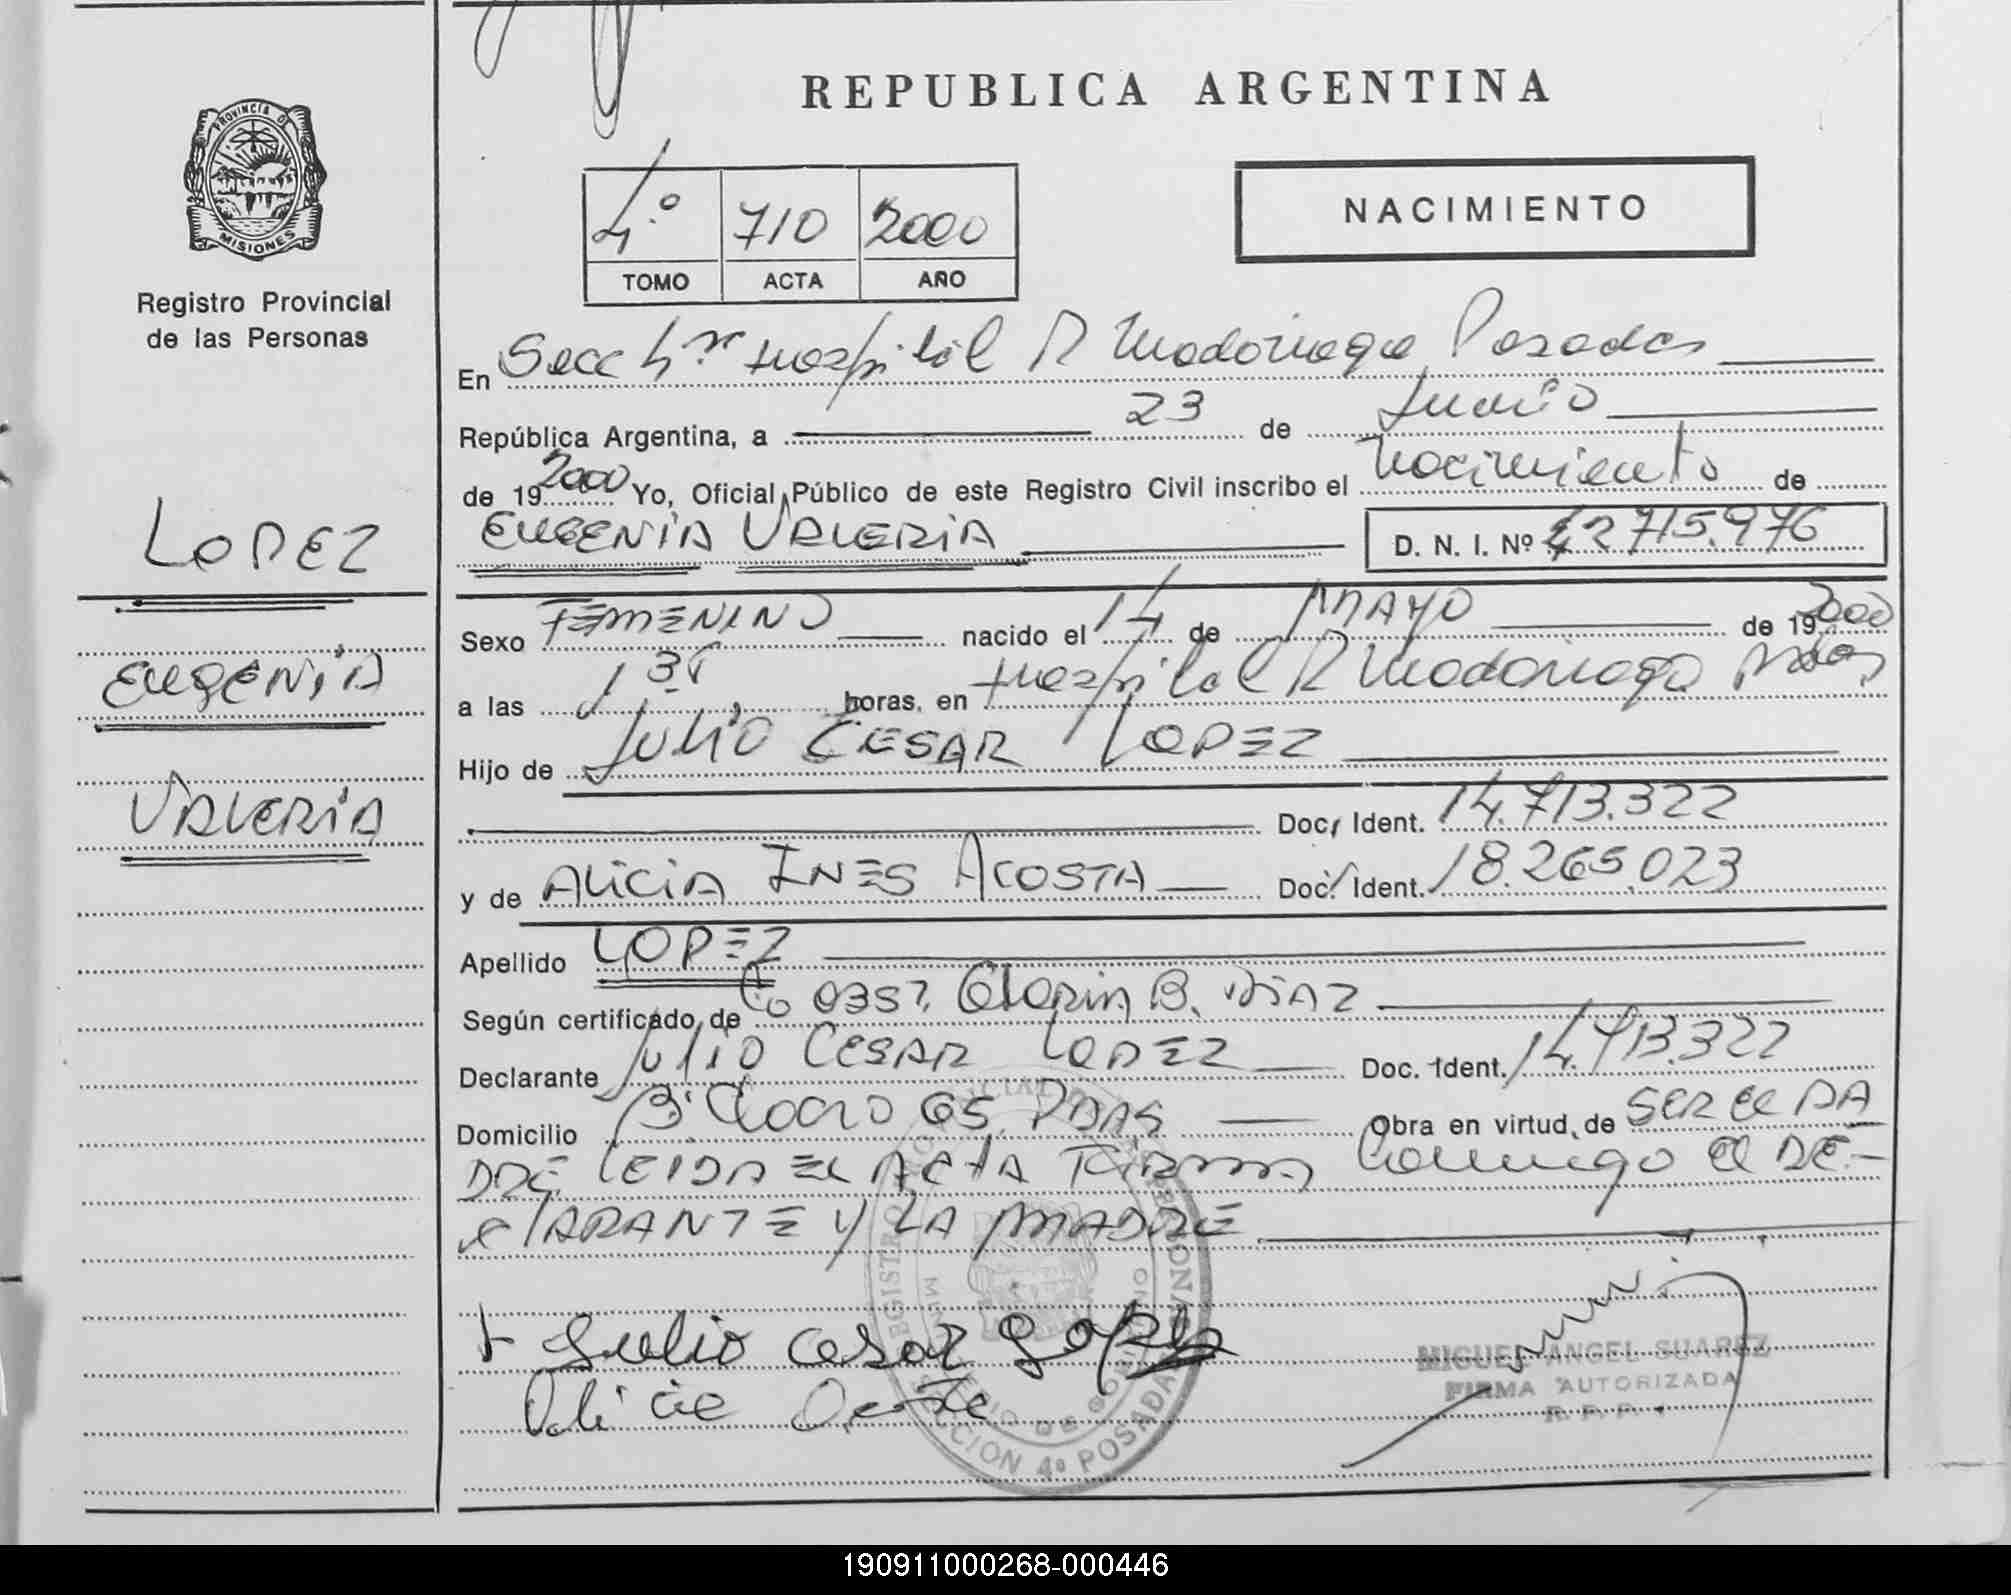 REPUBLICA ARGENTINA
PROVINCIA D
MISIONES
Registro Provincial
de las Personas
4º 710 2000
TOMO ACTA AÑO
NACIMIENTO
En Secc 4ª Hospital R Madariaga Posadas
República Argentina, a 23 de Junio
de 19 2000 Yo, Oficial Público de este Registro Civil inscribo el Nacimiento de
EUGENIA VALERIA D. N. I. Nº 42715.976
LOPEZ
EUGENIA
VALERIA
Sexo FEMENINO nacido el 14 de MAYO de 19 2000
a las 1 35 horas, en Hospital R Madariaga Pdas
Hijo de JULIO CESAR LOPEZ
Doc. Ident. 14.713.322
y de ALICIA INES ACOSTA Doc. Ident. 18.265.023
Apellido LOPEZ
Según certificado de 0357. Gloria B. DIAZ
Declarante JULIO CESAR LOPEZ Doc. Ident. 14.713.322
Domicilio Bº 65 PDAS Obra en virtud de SER EL PA
DRE LEIDA EL ACTA FIRMA Conmigo el DE-
CLARANTE Y LA MADRE
Julio Cesar Lopez
Alicia
MIGUEL ANGEL SUAREZ
FIRMA AUTORIZADA
R. P. P.
SECCION 4º POSADAS
190911000268-000446